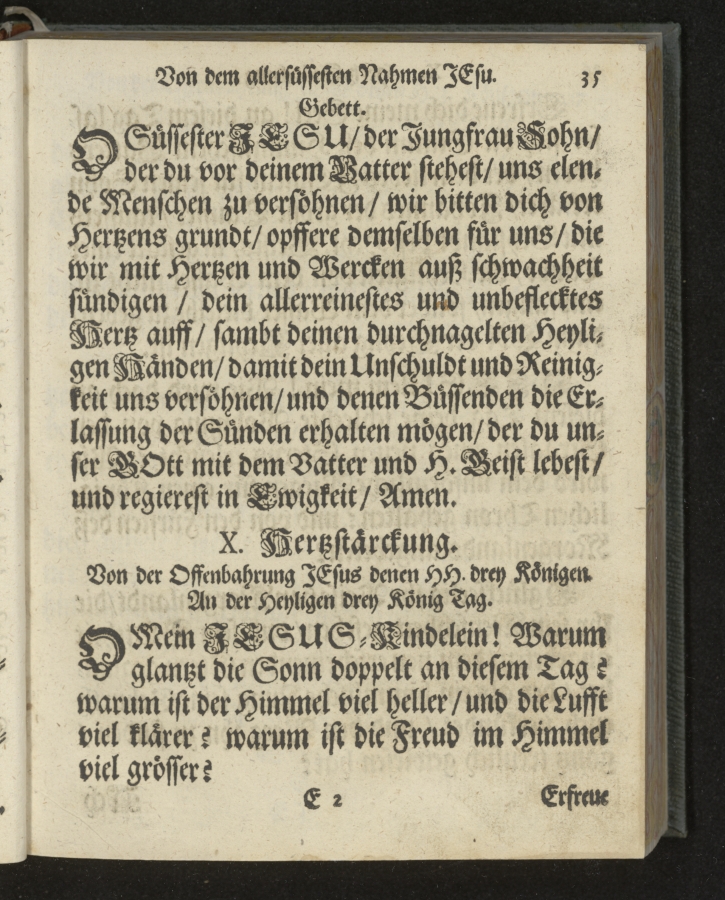 Von dem allersüssesten Nahmen JEsu. 35
Gebett.
O Süssester JESU/ der Jungfrau Sohn/
der du vor deinem Vatter stehest/ uns elen-
de Menschen zu versöhnen/ wir bitten dich von
Hertzens grundt/ opffere demselben für uns/ die
wir mit Hertzen und Wercken auß schwachheit
sündigen / dein allerreinestes und unbeflecktes
Hertz auff/ sambt deinen durchnagelten Heyli-
gen Händen/ damit dein Unschuldt und Reinig-
keit uns versöhnen/ und denen Büssenden die Er-
lassung der Sünden erhalten mögen/ der du un-
ser GOtt mit dem Vatter und H. Geist lebest/
und regierest in Ewigkeit/ Amen.
X. Hertzstärckung.
Von der Offenbahrung JEsus denen HH. drey Königen.
An der Heyligen drey König Tag.
O Mein JESUS-Kindelein! Warum
glantzt die Sonn doppelt an diesem Tag?
warum ist der Himmel viel heller/ und die Lufft
viel klärer? warum ist die Freud im Himmel
viel grösser?
E 2 Erfreue